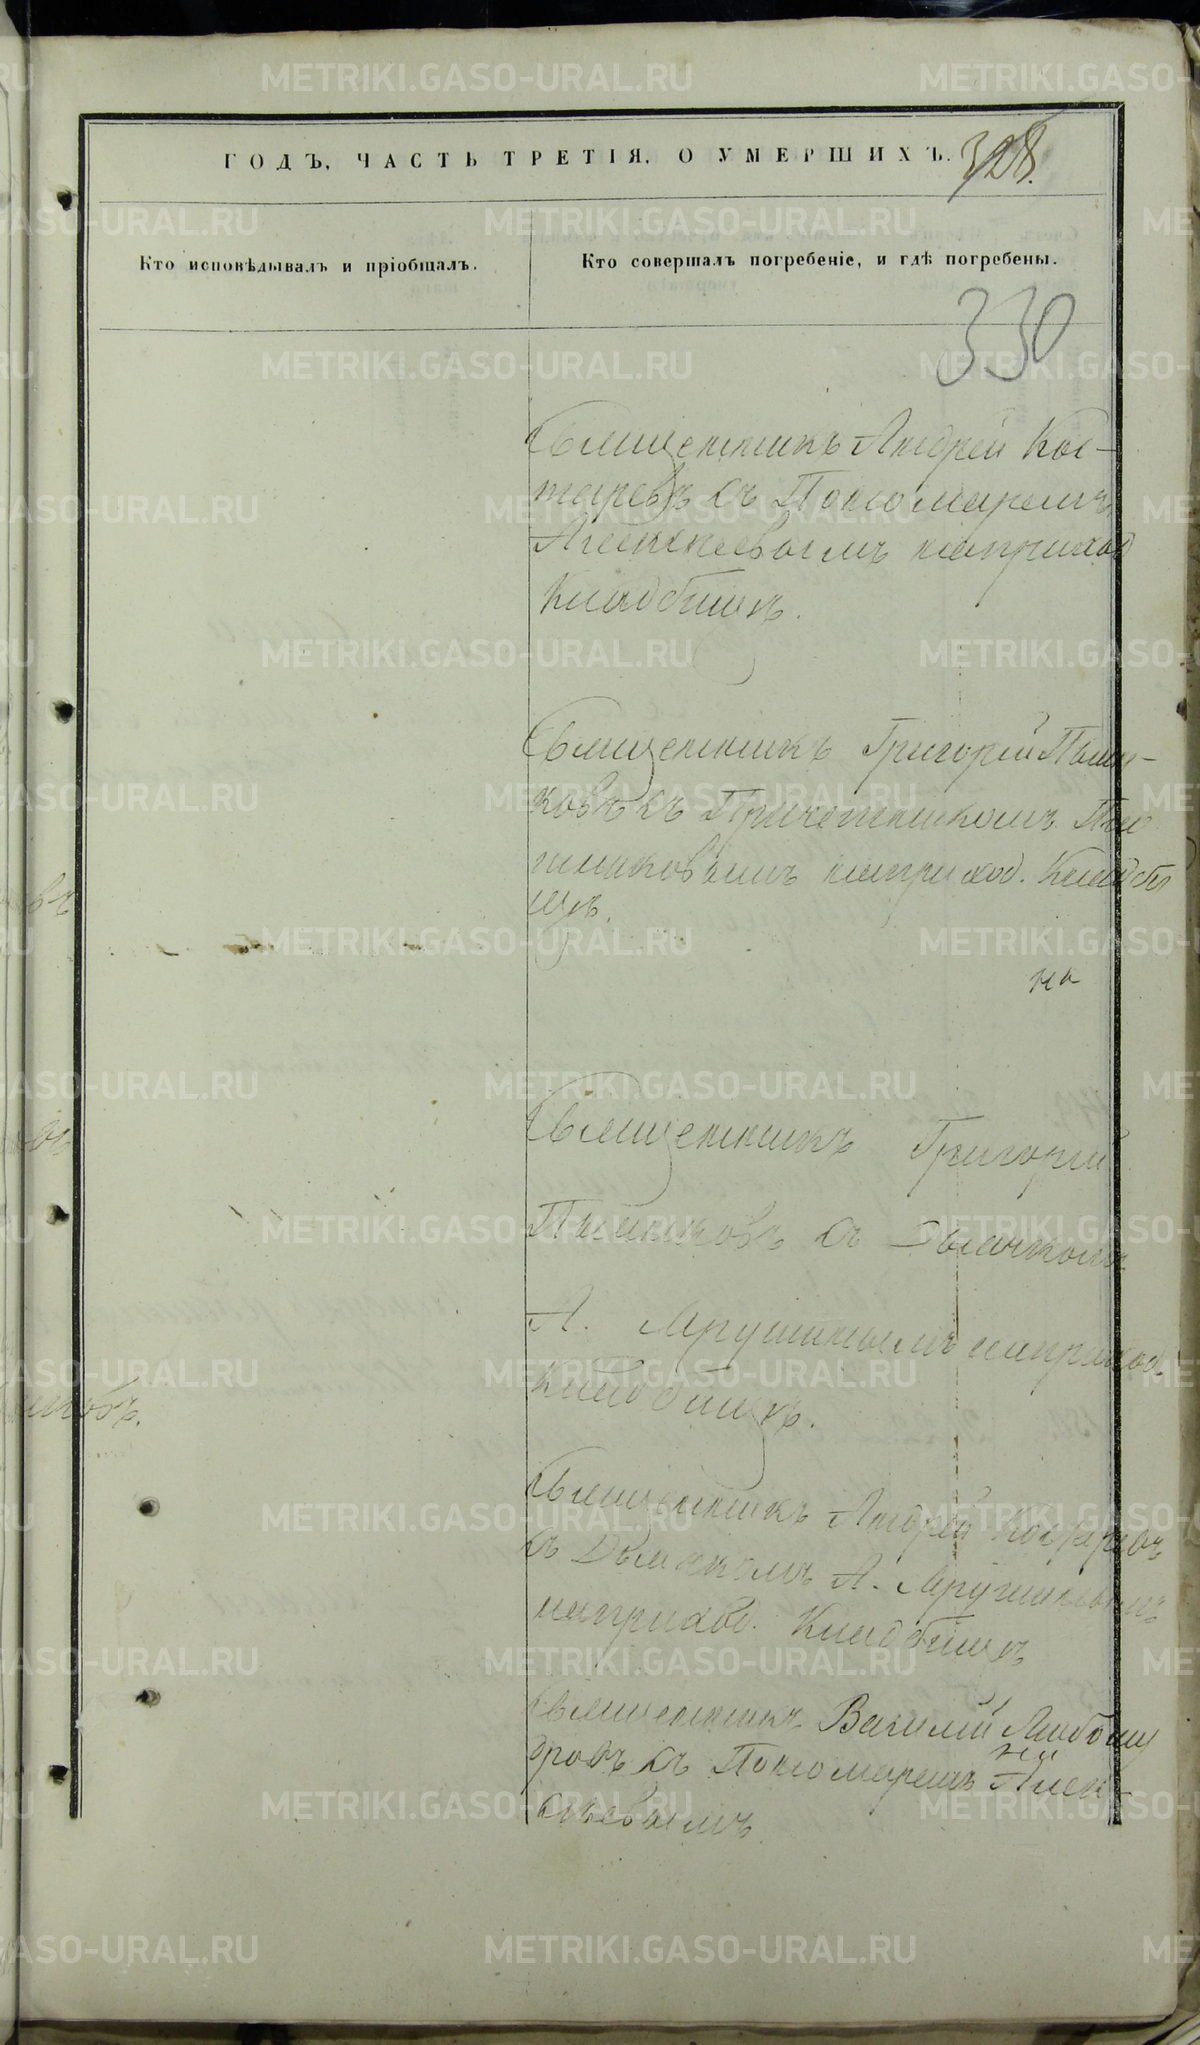 ГОДЪ, ЧАСТЬ ТРЕТІЯ, О УМЕРШИХЪ.
328.
Кто исповѣдывалъ и пріобщалъ.
Кто совершалъ погребеніе, и гдѣ погребены.
330
Священникъ Андрей Кос-
таревъ съ Пономаремъ
Алексеевымъ на приход
Кладбищѣ.
Священникъ Григорій Пань-
ковъ съ Причетникомъ
на приход. Кладби
щѣ.
на
Священникъ Григорій
съ Дьячкомъ
А. на приход.
Кладбищѣ.
Священникъ Андрей Костаревъ
съ Дьячкомъ А.
на приход. Кладбищѣ
Священникъ Василій
съ Пономаремъ Алек-
сѣевымъ
METRIKI.GASO-URAL.RU